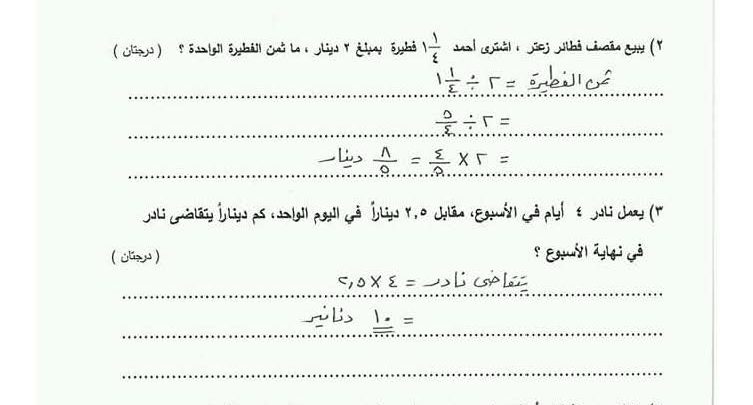 ٢) يبيع مقصف فطائر زعتر ، اشترى أحمد ١ ١/٤ فطيرة بمبلغ ٢ دينار ، ما ثمن الفطيرة الواحدة ؟ ( درجتان )
ثمن الفطيرة = ٢ ÷ ١ ١/٤
= ٢ ÷ ٥/٤
= ٢ × ٤/٥ = ٨/٥ دينار
٣) يعمل نادر ٤ أيام في الأسبوع، مقابل ٢,٥ ديناراً في اليوم الواحد، كم ديناراً يتقاضى نادر
في نهاية الأسبوع ؟ ( درجتان )
يتقاضى نادر = ٤ × ٢,٥
= ١٠ دنانير